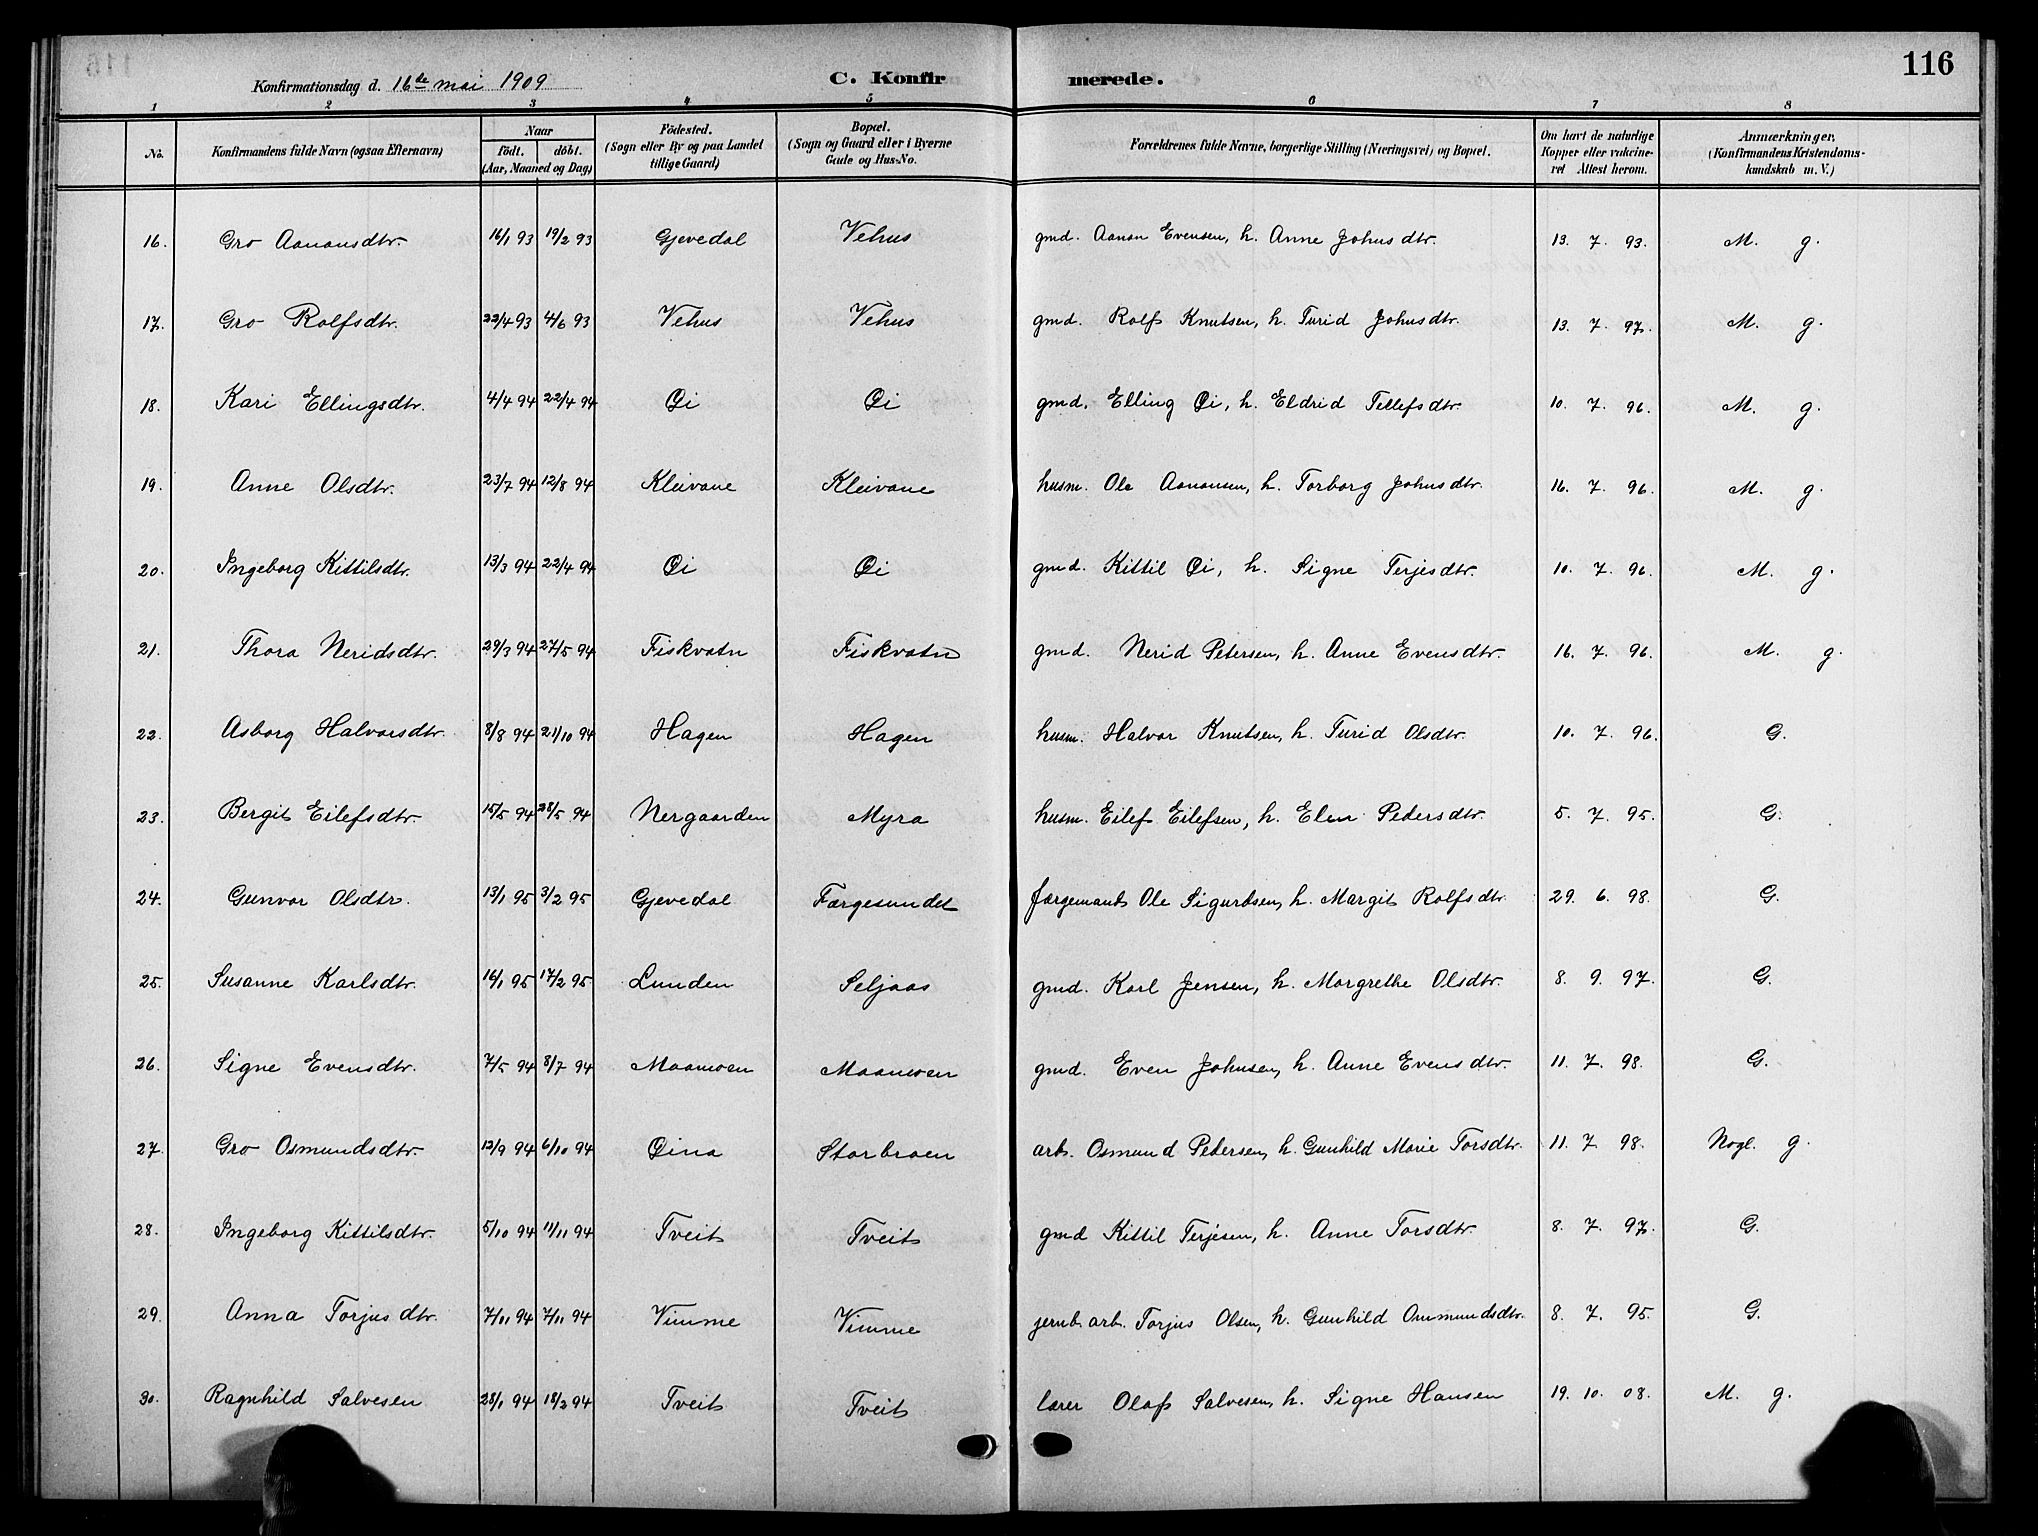 116
Konfirmationsdag d. 16de mai 1909 C. Konfirmerede.
1 2 3 4 5 6 7 8
No. Konfirmandens fulde Navn (ogsaa Efternavn) Naar födt. döbt. (Aar, Maaned og Dag) Födested. (Sogn eller By og paa Landet tillige Gaard) Bopæl. (Sogn og Gaard eller i Byerne Gade og Hus-No. Forældrenes fulde Navne, borgerlige Stilling (Næringsvei) og Bopæl. Om havt de naturlige Kopper eller vakcineret Attest herom. Anmærkninger, (Konfirmandens Kristendomskundskab m. V.)
16. Gro Aanonsdtr. 16/1 93 19/2 93 Gjevedal Vehus gmd. Aanon Evensen, h. Anne Johnsdtr. 13. 7. 93. M. g.
17. Gro Rolfsdtr. 22/4 93 4/6 93 Vehus Vehus gmd. Rolf Knutsen, h. Turid Johnsdtr. 13. 7. 97. M. g.
18. Kari Ellingsdtr. 4/4 94 22/4 94 Øi Øi gmd. Elling Øi, h. Eldrid Tellefsdtr. 10. 7. 96. M. g.
19. Anne Olsdtr. 23/7 94 12/8 94 Kleivane Kleivane husm. Ole Aanonsen, h. Torborg Johnsdtr. 16. 7. 96. M. g.
20. Ingeborg Kittilsdtr. 13/3 94 22/4 94 Øi Øi gmd. Kittil Øi, h. Signe Terjesdtr. 10. 7. 96. M. g.
21. Thora Neridsdtr. 29/3 94 27/5 94 Fiskvatn Fiskvatn gmd. Nerid Petersen, h. Anne Evensdtr. 16. 7. 96. M. g.
22. Asborg Halvorsdtr. 8/8 94 21/10 94 Hagen Hagen husm. Halvor Knutsen, h. Turid Olsdtr. 10. 7. 96. G.
23. Bergit Eilefsdtr. 15/5 94 28/5 94 Nergaarden Myra husm. Eilef Eilefsen, h. Elen Pedersdtr. 5. 7. 95. G.
24. Gunvor Olsdtr. 13/1 95 3/2 95 Gjevedal Færgesundet færgemand Ole Sigurdsen, h. Margit Rolfsdtr. 29. 6. 98. G.
25. Susanne Karlsdtr. 16/1 95 17/2 95 Lunden Seljaas gmd. Karl Jensen, h. Margrethe Olsdtr. 8. 9. 97. G.
26. Signe Evensdtr. 7/5 94 8/7 94 Maamoen Maamoen gmd. Even Johnsen, h. Anne Evensdtr. 11. 7. 98. G.
27. Gro Osmundsdtr. 12/9 94 6/10 94 Øina Storbroen arb. Osmund Pedersen, h. Gunhild Marie Torsdtr. 11. 7. 98. Nogl. g.
28. Ingeborg Kittilsdtr. 5/10 94 11/11 94 Tveit Tveit gmd Kittil Terjesen, h. Anne Torsdtr. 8. 7. 97. G.
29. Anna Torjusdtr. 7/11 94 7/11 94 Vimme Vimme jernb. arb. Torjus Olsen, h. Gunhild Ommundsdtr. 8. 7. 95. G.
30. Ragnhild Salvesen 28/1 94 18/2 94 Tveit Tveit lærer Olaf Salvesen, h. Signe Hansen 19. 10. 08. M. g.